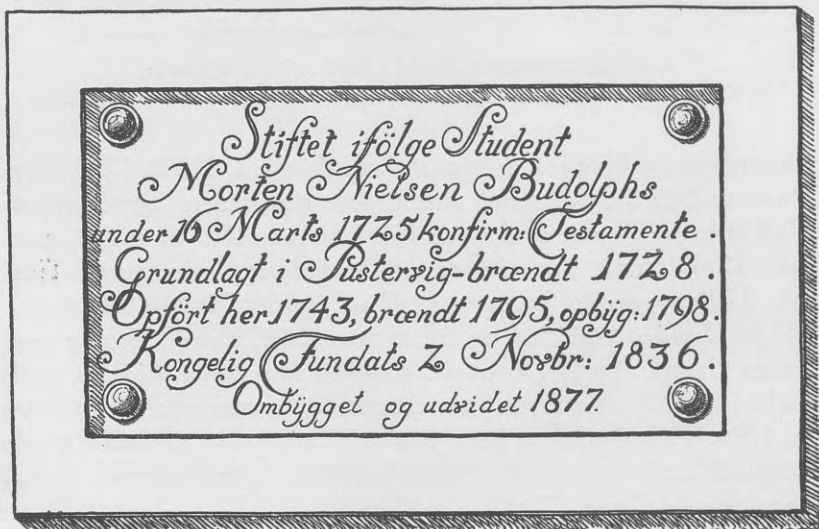 Stiftet ifölge Student
Morten Nielsen Budolphs
under 16 Marts 1725 konfirm: Testamente.
Grundlagt i Pustervig-brændt 1728.
Opfört her 1743, brændt 1795, opbÿg: 1798.
Kongelig Fundats 2 Novbr: 1836.
Ombÿgget og udvidet 1877.